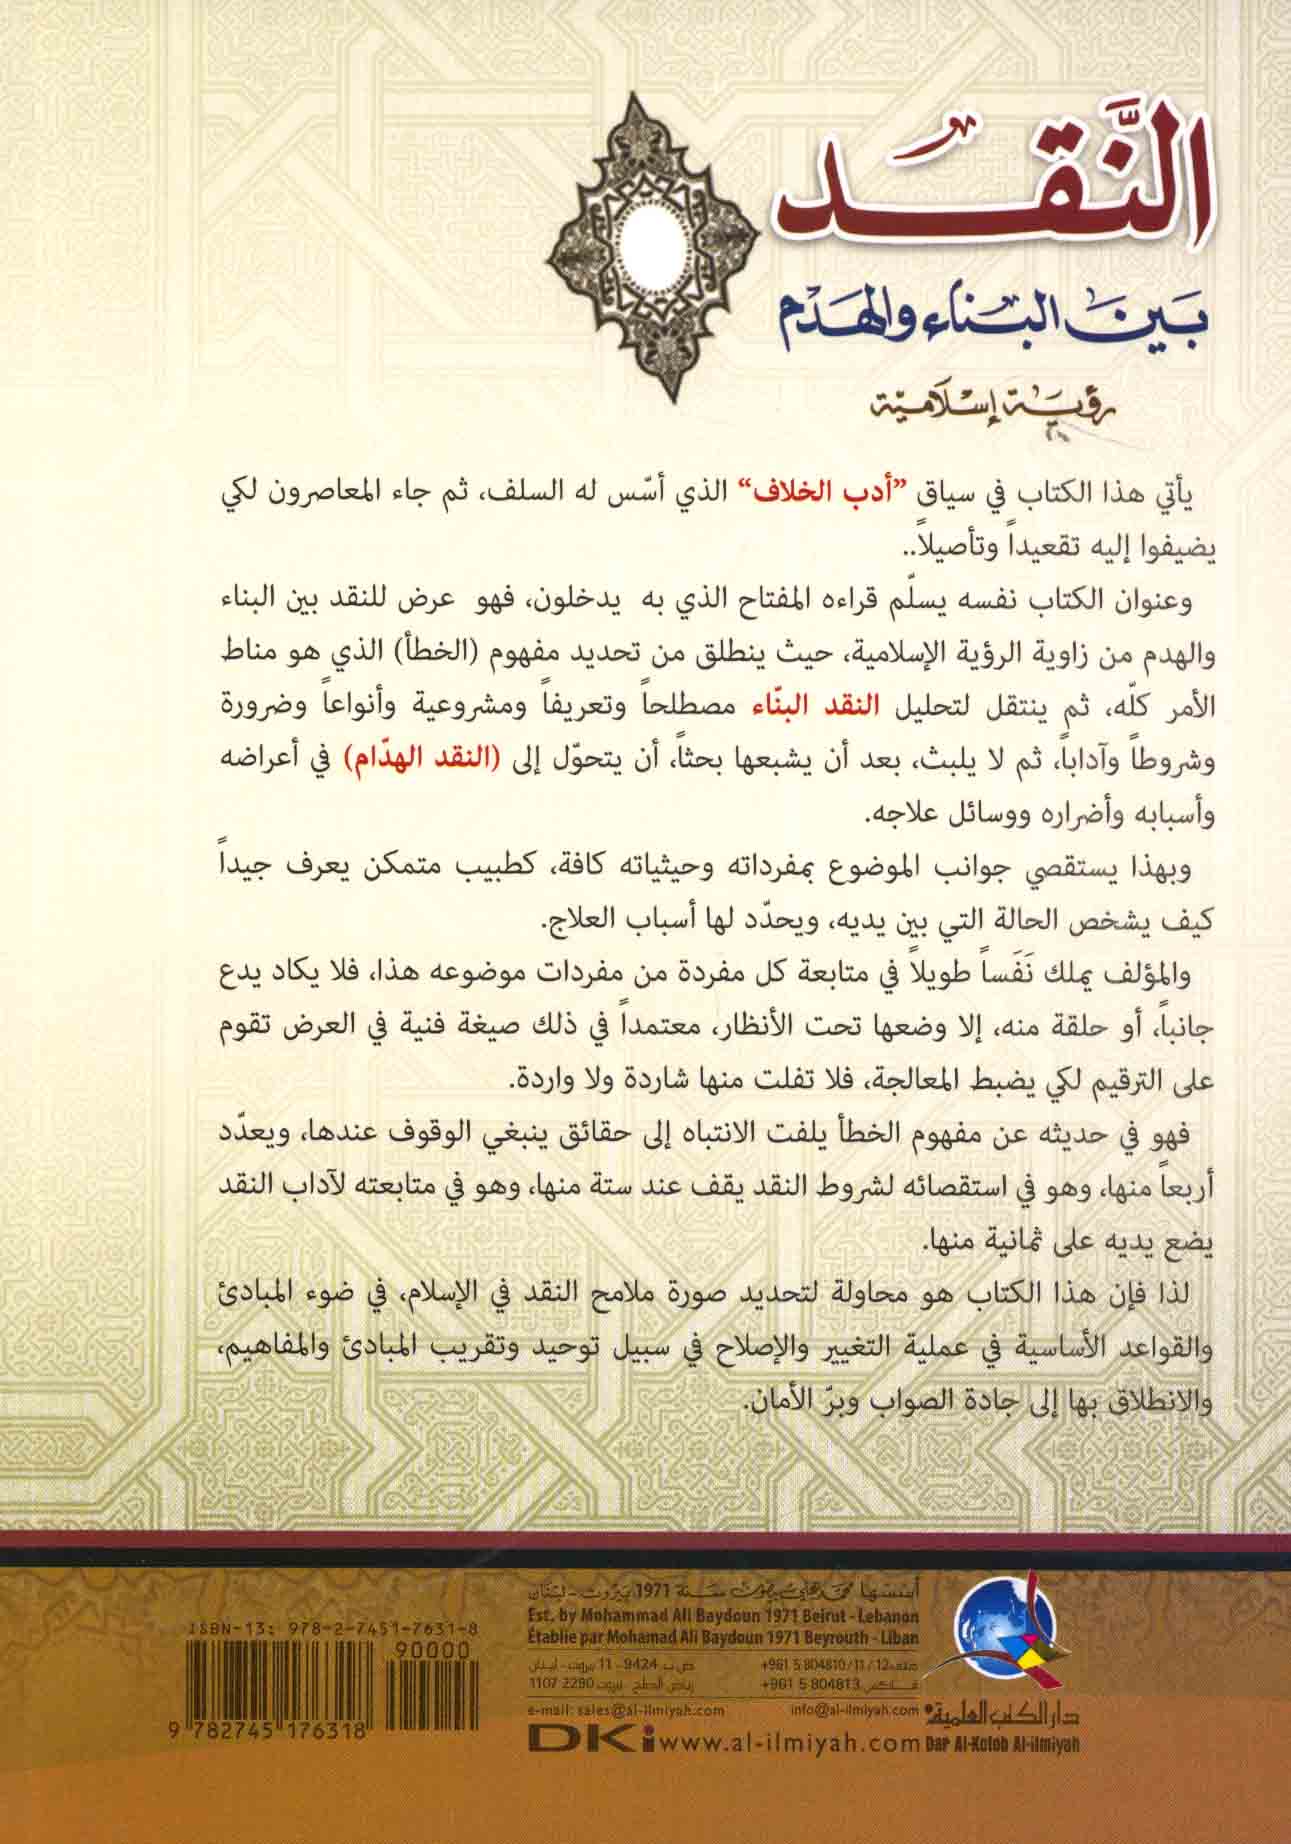 النَّقد
بين البناء والهدم
رؤية إسلامية
يأتي هذا الكتاب في سياق "أدب الخلاف" الذي أسّس له السلف، ثم جاء المعاصرون لكي
يضيفوا إليه تقعيداً وتأصيلاً..
وعنوان الكتاب نفسه يسلّم قراءه المفتاح الذي به يدخلون، فهو عرض للنقد بين البناء
والهدم من زاوية الرؤية الإسلامية، حيث ينطلق من تحديد مفهوم (الخطأ) الذي هو مناط
الأمر كلّه، ثم ينتقل لتحليل النقد البنّاء مصطلحاً وتعريفاً ومشروعية وأنواعاً وضرورة
وشروطاً وآداباً، ثم لا يلبث، بعد أن يشبعها بحثاً، أن يتحوّل إلى (النقد الهدّام) في أعراضه
وأسبابه وأضراره ووسائل علاجه.
وبهذا يستقصي جوانب الموضوع بمفرداته وحيثياته كافة، كطبيب متمكن يعرف جيداً
كيف يشخص الحالة التي بين يديه، ويحدّد لها أسباب العلاج.
والمؤلف يملك نَفَساً طويلاً في متابعة كل مفردة من مفردات موضوعه هذا، فلا يكاد يدع
جانباً، أو حلقة منه، إلا وضعها تحت الأنظار، معتمداً في ذلك صيغة فنية في العرض تقوم
على الترقيم لكي يضبط المعالجة، فلا تفلت منها شاردة ولا واردة.
فهو في حديثه عن مفهوم الخطأ يلفت الانتباه إلى حقائق ينبغي الوقوف عندها، ويعدّد
أربعاً منها، وهو في استقصائه لشروط النقد يقف عند ستة منها، وهو في متابعته لآداب النقد
يضع يديه على ثمانية منها.
لذا فإن هذا الكتاب هو محاولة لتحديد صورة ملامح النقد في الإسلام، في ضوء المبادئ
والقواعد الأساسية في عملية التغيير والإصلاح في سبيل توحيد وتقريب المبادئ والمفاهيم،
والانطلاق بها إلى جادة الصواب وبرّ الأمان.
أسسها محمد علي بيضون سنة 1971 بيروت - لبنان
Est. by Mohammad Ali Baydoun 1971 Beirut - Lebanon
Établie par Mohamad Ali Baydoun 1971 Beyrouth - Liban
هاتف: +961 5 804810/11/12 ص.ب: 11-9424 بيروت - لبنان
فاكس: +961 5 804813 رياض الصلح - بيروت 1107 2290
e-mail: sales@al-ilmiyah.com info@al-ilmiyah.com
DKi www.al-ilmiyah.com
دار الكتب العلمية
Dar Al-Kotob Al-ilmiyah
ISBN-13: 978-2-7451-7631-8
90000
9 782745 176318